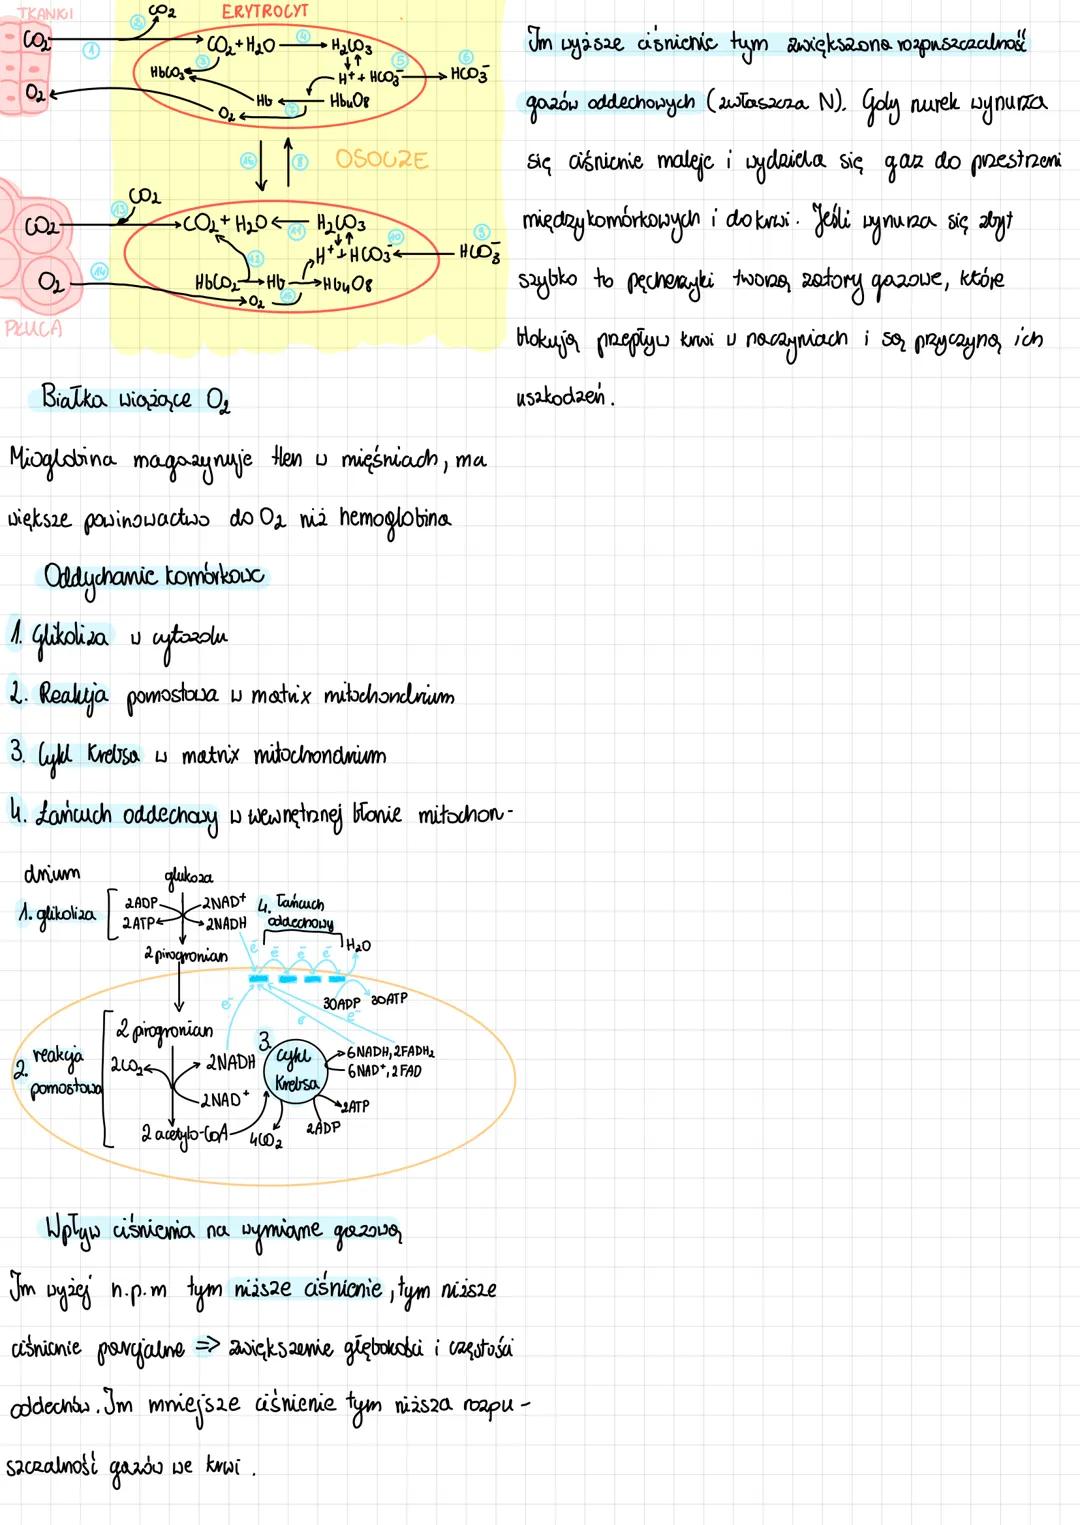 TKANKI
CO₂
ERYTROCYT
CO₂
②
①
CO₂+H₂O
④
H₂CO₃
③
HbCO₂
H⁺+HCO₃⁻
⑤
⑥
HCO₃⁻
O₂
Hb
⑦
HbuO₈
O₂
⑯
⑧
OSOCZE
CO₂
⑬
CO₂
CO₂+H₂O
⑪
H₂CO₃
H⁺+HCO₃⁻
⑩
⑨
HCO₃⁻
⑫
⑭
O₂
HbCO₂
Hb
HbuO₈
O₂
⑮
PŁUCA
Białka wiążące O₂
Mioglobina magazynuje tlen w mięśniach, ma
większe powinowactwo do O₂ niż hemoglobina
Oddychanie komórkowe
1. Glikoliza w cytozolu
2. Reakcja pomostowa w matrix mitochondrium
3. Cykl Krebsa w matrix mitochondrium
4. Łańcuch oddechowy w wewnętrznej błonie mitochon-
drium
glukoza
1. glikoliza
2ADP
2ATP
2NAD⁺
2NADH
4. Łańcuch
oddechowy
H₂O
2 pirogronian
e⁻ e⁻ e⁻ e⁻
30ADP 30ATP
e⁻
e⁻
e⁻
2 pirogronian
2. reakcja
pomostowa
2CO₂
2NADH
2NAD⁺
3. cykl
Krebsa
6NADH, 2FADH₂
6NAD⁺, 2FAD
2ATP
2ADP
2 acetylo-CoA
4CO₂
Wpływ ciśnienia na wymiane gazową
Im wyżej n.p.m tym niższe ciśnienie, tym niższe
ciśnienie parcjalne => zwiększenie głębokości i częstości
oddechów. Im mniejsze ciśnienie tym niższa rozpu-
szczalność gazów we krwi.
Im wyższe ciśnienie tym zwiększona rozpuszczalność
gazów oddechowych (zwłaszcza N). Gdy nurek wynurza
się ciśnienie maleje i wydziela się gaz do przestrzeni
międzykomórkowych i do krwi. Jeśli wynurza się zbyt
szybko to pęcherzyki tworzą zatory gazowe, które
blokują przepływ krwi w naczyniach i są przyczyną ich
uszkodzeń.